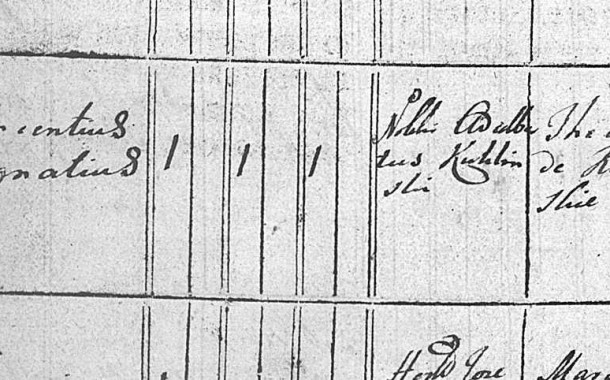 centius
gnatius
1 1 1
Nobilis Adalber
tus Kuklin
ski
The
de K
skie
Jose
Mar